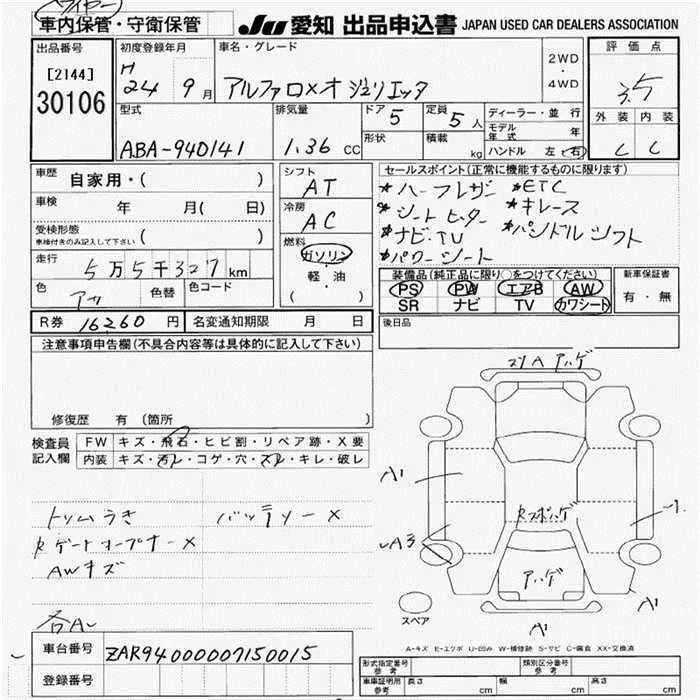 車内保管・守衛保管
JU 愛知 出品申込書 JAPAN USED CAR DEALERS ASSOCIATION
出品番号
[2144]
30106
初度登録年月
H 24 9 月
車名・グレード
アルファロメオ ジュリエッタ
2WD
・
4WD
評価点
3.5
外装 内装
C C
型式
ABA-940141
排気量
1.36 CC
ドア 5
形状
定員 5 人
積載 kg
ディーラー・並行
モデル年式 年
ハンドル 左・右
車歴 自家用・( )
車検 年 月( 日)
受検形態
車検付きのみ記入して下さい ( )
走行 5万5千327 km
色 アカ 色替 色コード
シフト
AT
冷房
AC
燃料
ガソリン
軽・油
( )
セールスポイント(正常に機能するものに限ります)
*ハーフレザー *ETC
*シートヒーター *キレース
*ナビ・TV *パドルシフト
*パワーシート
装備品(純正品に限り○をつけてください)
PS PW エアB AW
SR ナビ TV カワシート
新車保証書
有・無
R券 16260 円 名変通知期限 月 日
後日品
注意事項申告欄(不具合内容等は具体的に記入して下さい)
修復歴 有 (箇所 )
検査員記入欄
FW キズ・飛石・ヒビ割・リペア跡・X要
内装 キズ・汚レ・コゲ・穴・スレ・キレ・破レ
トリムうき バッテリー×
Rゲートオープナー×
AWキズ
各A
A ハゲ
A1
A3
Rスポハゲ
アハゲ
A1
A1
スペア
A-キズ E-エクボ U-凹み W-補修跡 S-サビ C-腐食 XX-交換済
車台番号 ZAR94000007150015
登録番号
形式指定番号 参考
類別区分番号 参考
車庫証明用 参考 長さ cm 幅 cm 高さ cm